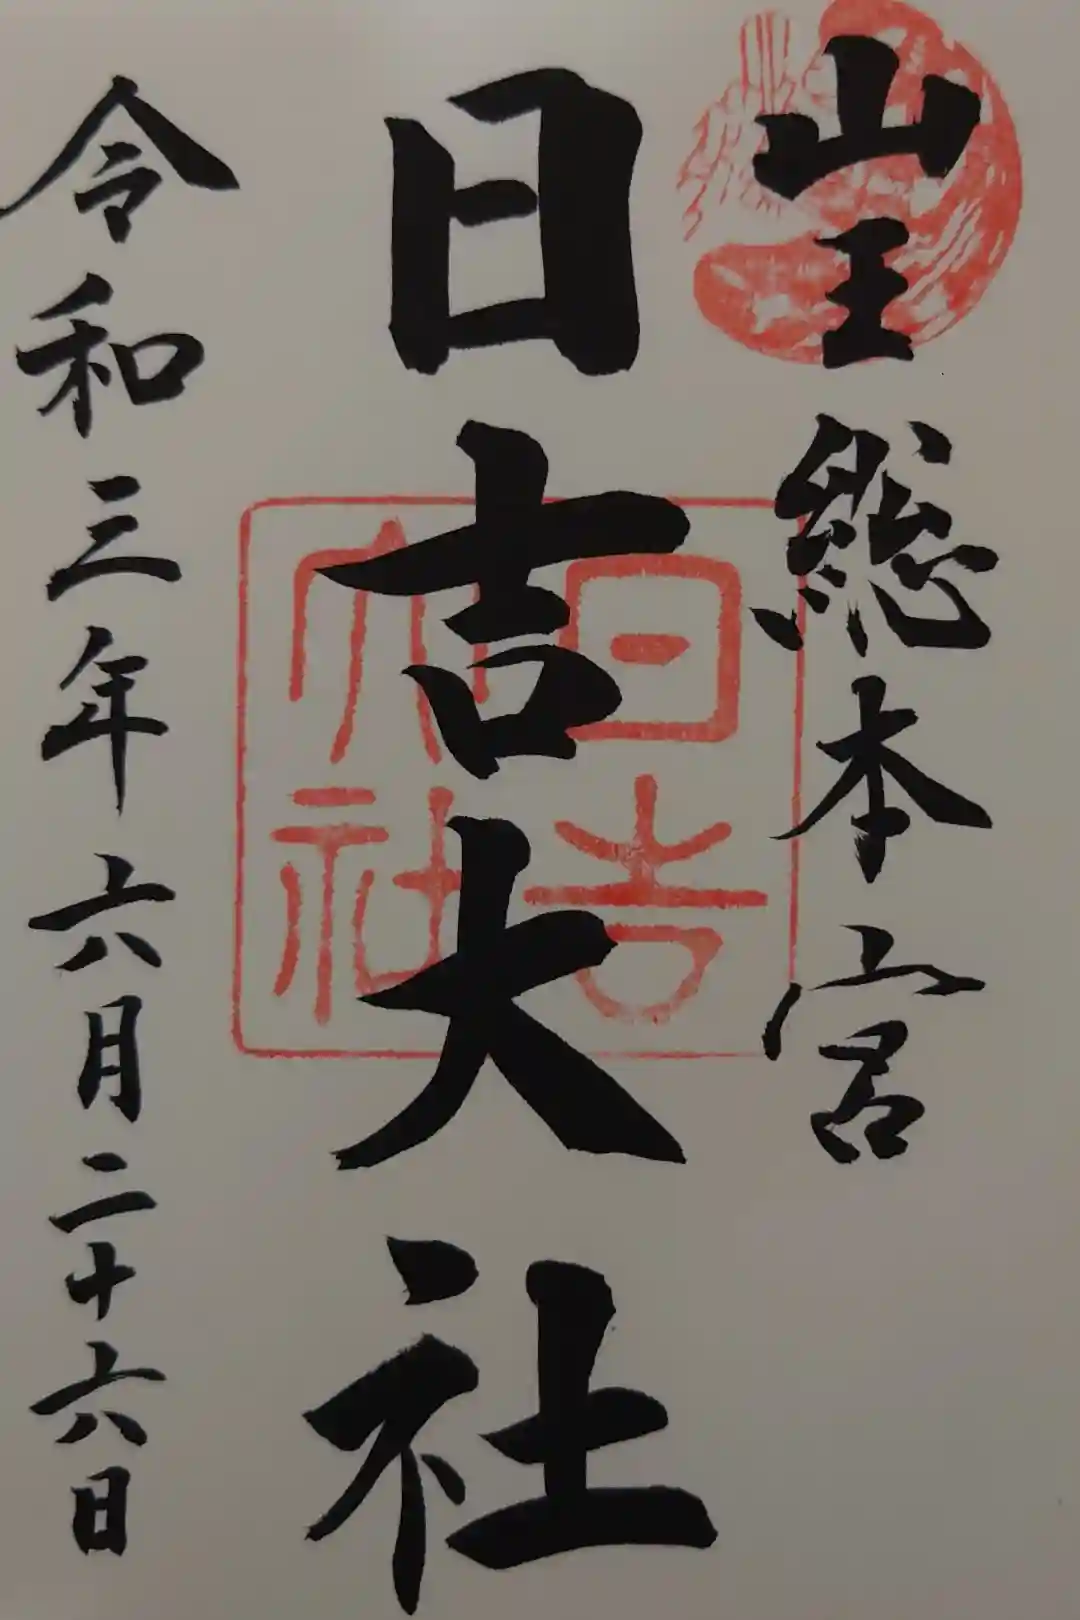 山王総本宮
日吉大社
日吉
大社
令和三年六月二十六日